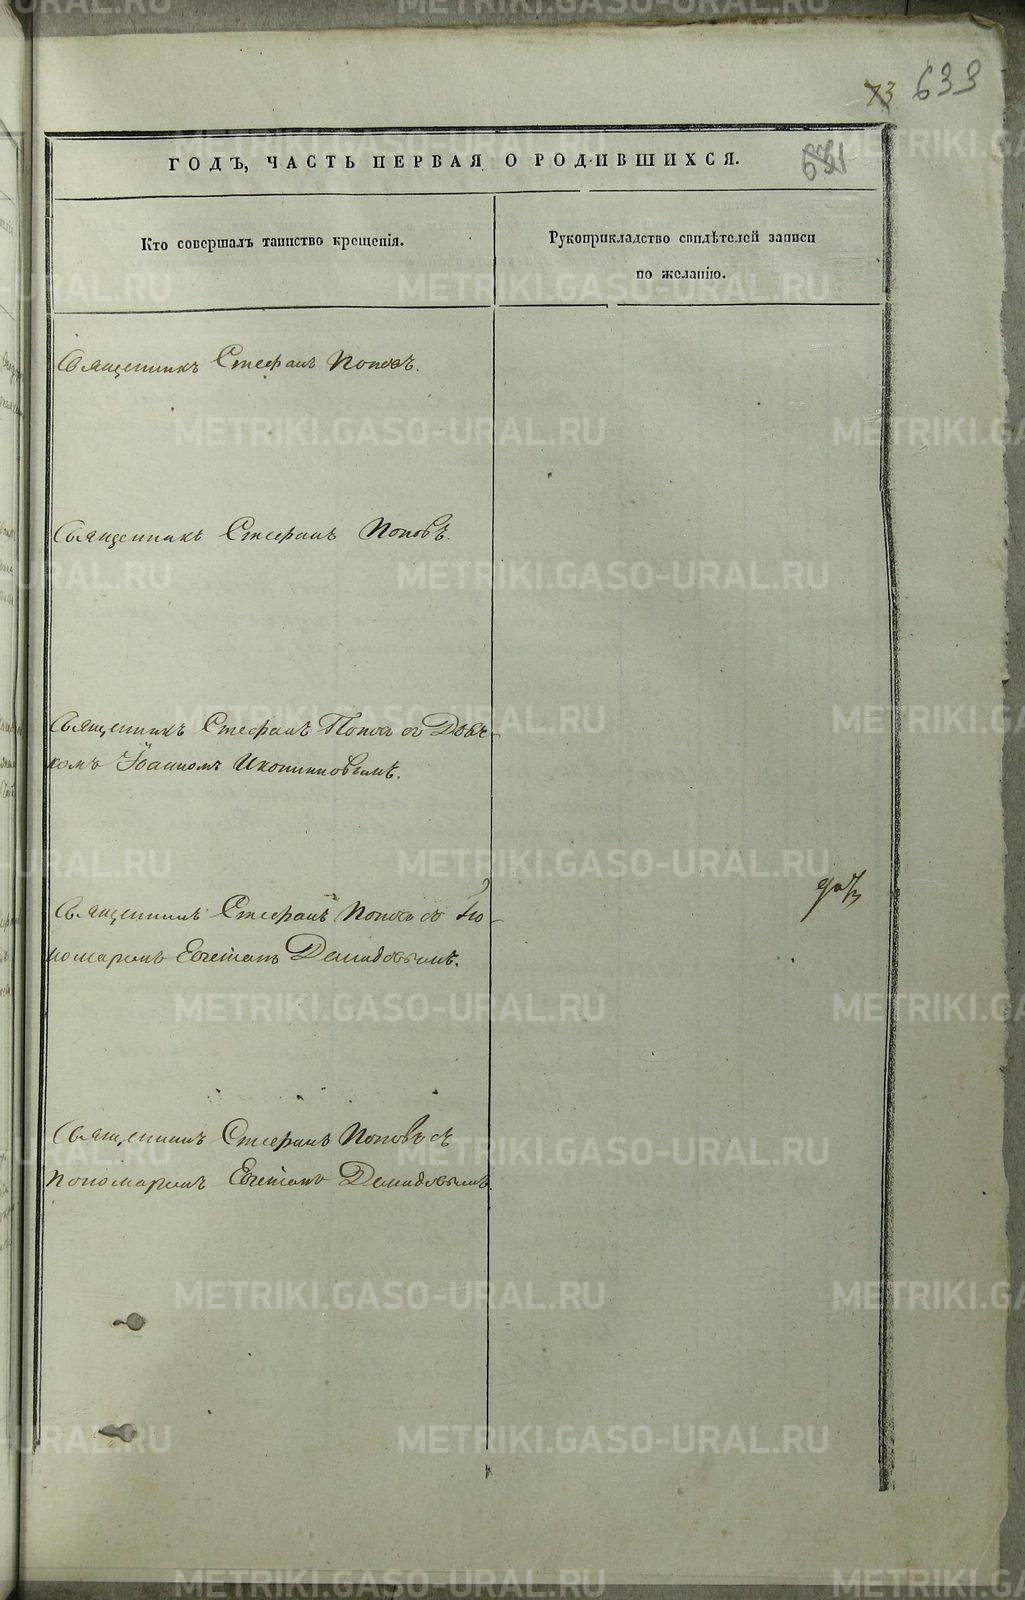 73 633
631
ГОДЪ, ЧАСТЬ ПЕРВАЯ О РОДИВШИХСЯ.
Кто совершалъ таинство крещенія.
Рукоприкладство свидѣтелей записи
по желанію.
Священникъ Стефанъ Поповъ.
Священникъ Стефанъ Поповъ.
Священникъ Стефанъ Поповъ съ Дьяч-
комъ Іоанномъ Иконниковымъ.
Священникъ Стефанъ Поповъ съ По-
номаремъ Демидовымъ.
Священникъ Стефанъ Поповъ съ
пономаремъ Демидовымъ.
METRIKI.GASO-URAL.RU